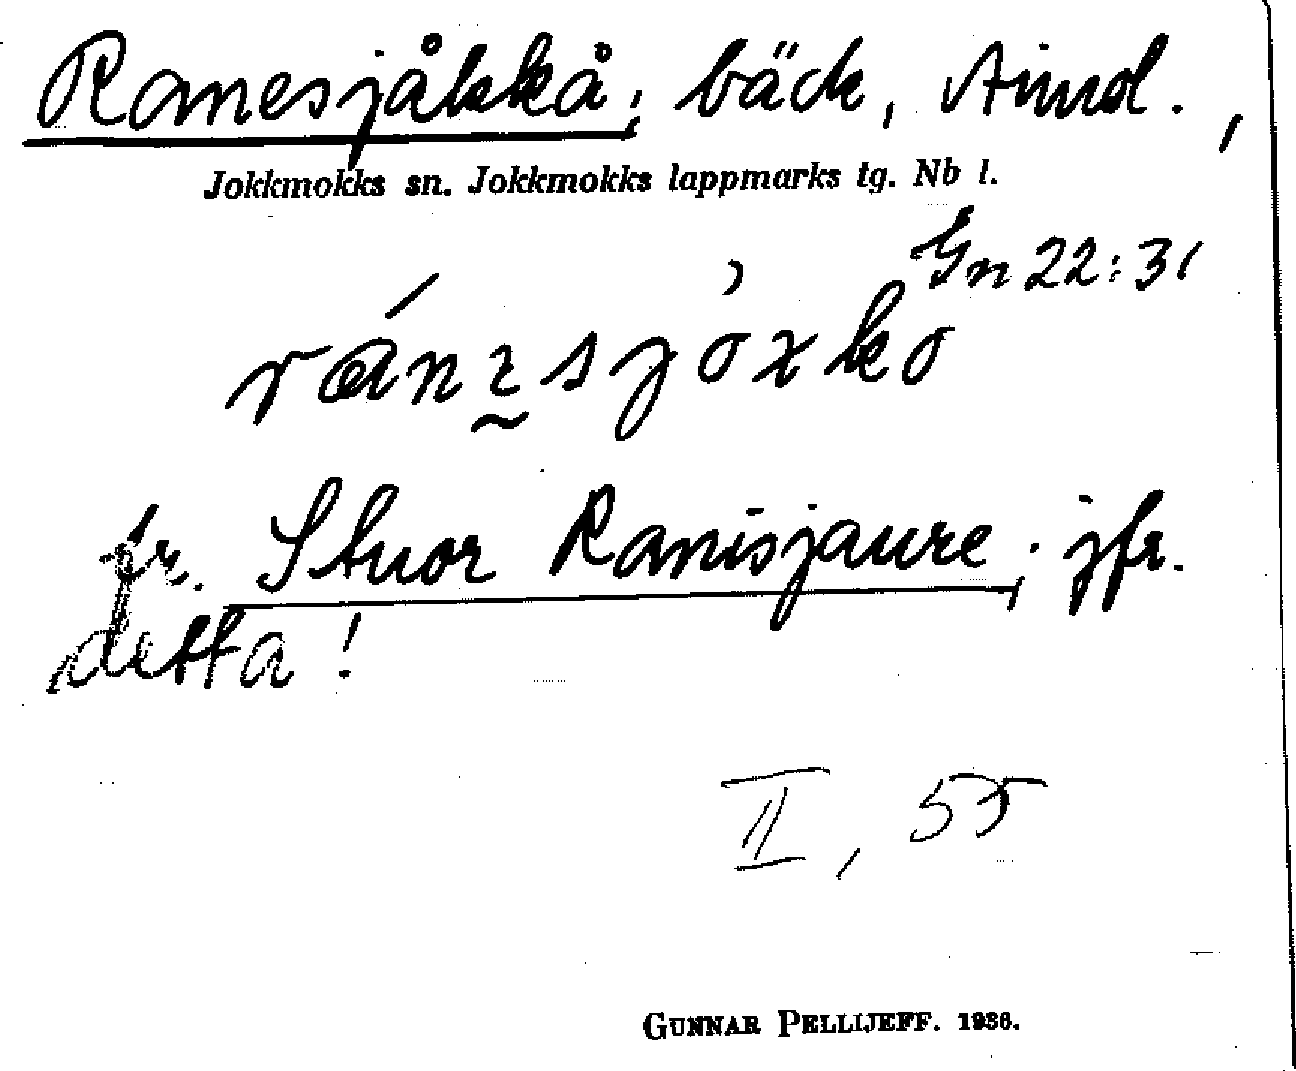 Ranesjåkkå, bäck,
Jokkmokks sn. Jokkmokks lappmarks tg. Nb l.
Gn 22:31
fr. Stuor Ranisjaure; jfr.
detta!
II, 55
GUNNAR PELLIJEFF. 1936.